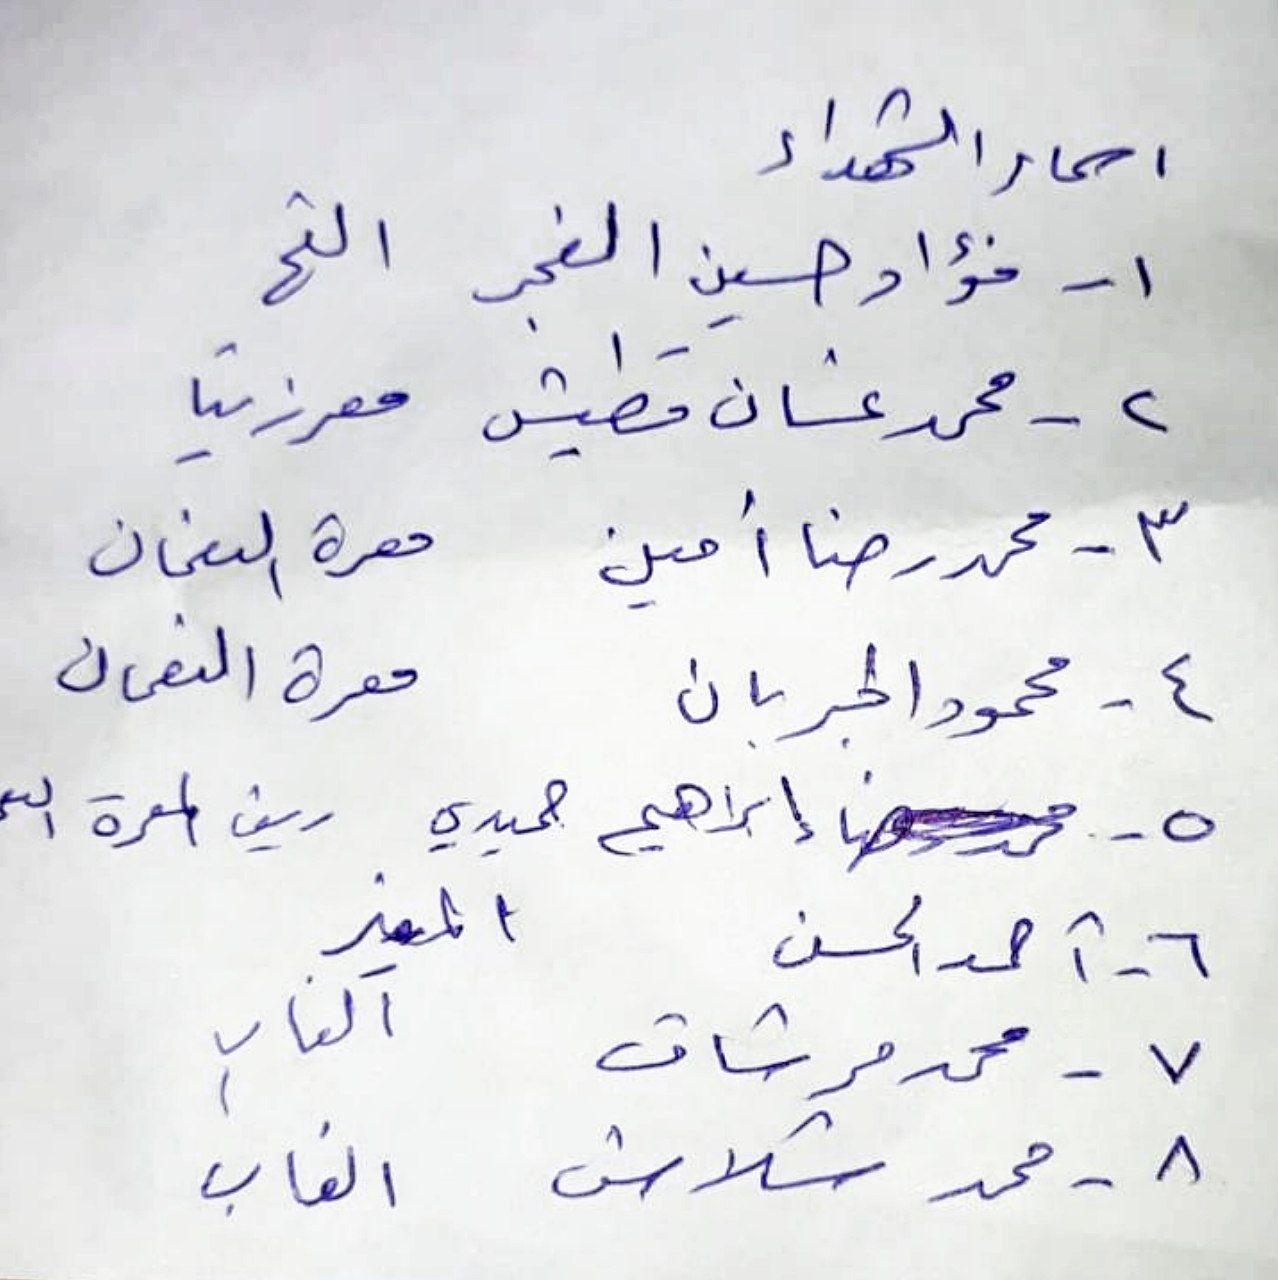 اسماء الشهداء
١- فؤاد حسين الفجر التح
٢- محمد غسان قطيش معرزيتا
٣- محمد رضا أمين معرة النعمان
٤- محمود الجربان معرة النعمان
٥- إبراهيم حميدي ريف المعرة
٦- أحمد الحسن
٧- محمد مرشاق الغاب
٨- محمد شلاش الغاب